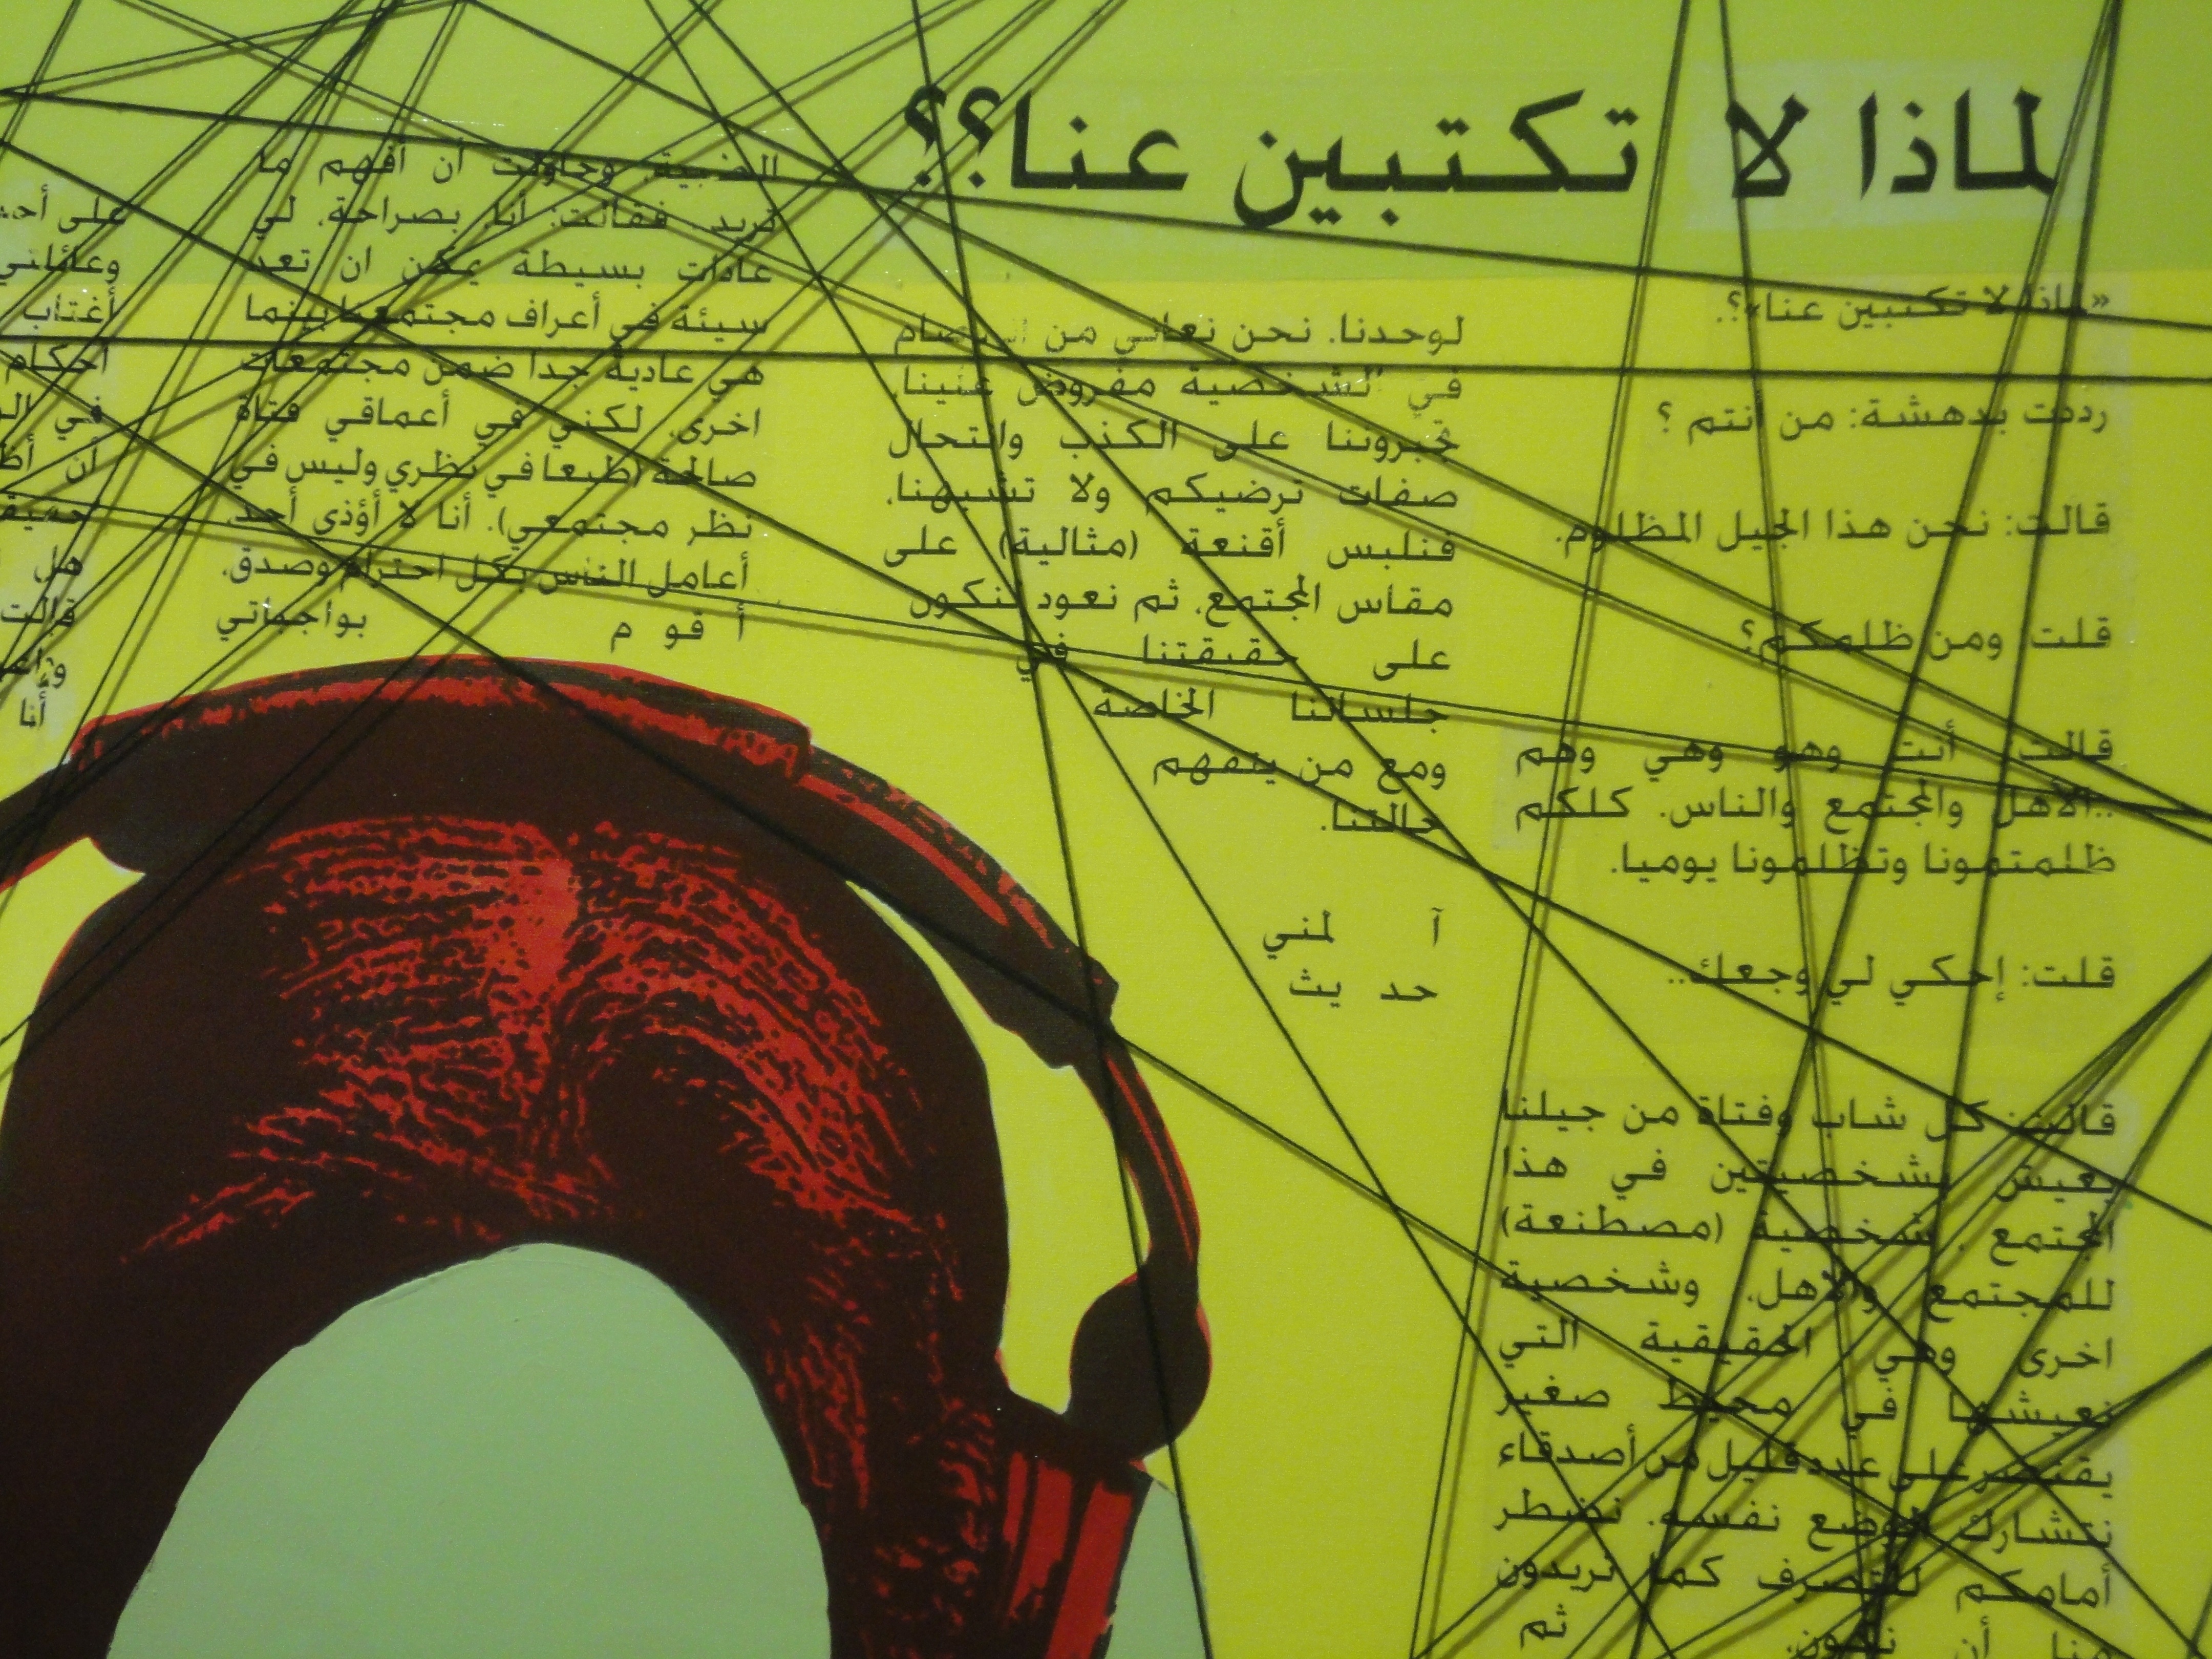 لماذا لا تكتبين عنا؟؟
«لماذا لا تكتبين عنا»؟.
رددت بدهشة: من انتم ؟
قالت: نحن هذا الجيل المظلوم.
قلت ومن ظلمكم؟
قالت: أنت وهو وهي وهم
..الأهل والمجتمع والناس. كلكم
ظلمتمونا وتظلمونا يوميا.
قلت: إحكي لي وجعك..
قالت: كل شاب وفتاة من جيلنا
يعيش بشخصيتين في هذا
المجتمع . شخصية (مصطنعة)
للمجتمع والاهل. وشخصية
اخرى وهي الحقيقية التي
نعيشها في محيط صغير
يقتصر على عدد قليل من أصدقاء
نتشارك الوضع نفسه. نضطر
أمامكم للتصرف كما تريدون
منا أن نكون. ثم
لوحدنا. نحن نعاني من
في الشخصية مفروض علينا.
تجبروننا على الكذب وانتحال
صفات ترضيكم ولا تشبهنا.
فنلبس أقنعة (مثالية) على
مقاس المجتمع. ثم نعود لنكون
على حقيقتنا في
جلساتنا الخاصة
ومع من يتفهم
حالتنا.
آ لمني
حد يث
وحاولت أن أفهم ما
تريد. فقالت: أنا. بصراحة. لي
عادات بسيطة يمكن ان تعد
سيئة في أعراف مجتمعنا بينما
هي عادية جدا ضمن مجتمعات
اخرى. لكني في أعماقي فتاة
صالحة (طبعا في نظري وليس في
نظر مجتمعي). أنا لا أؤذي أحد
أعامل الناس بكل احترام وصدق.
أ قو م بواجباتي
على
وعائلتي
أغتاب
أحكام
في
أن
هل
قالت
أنا